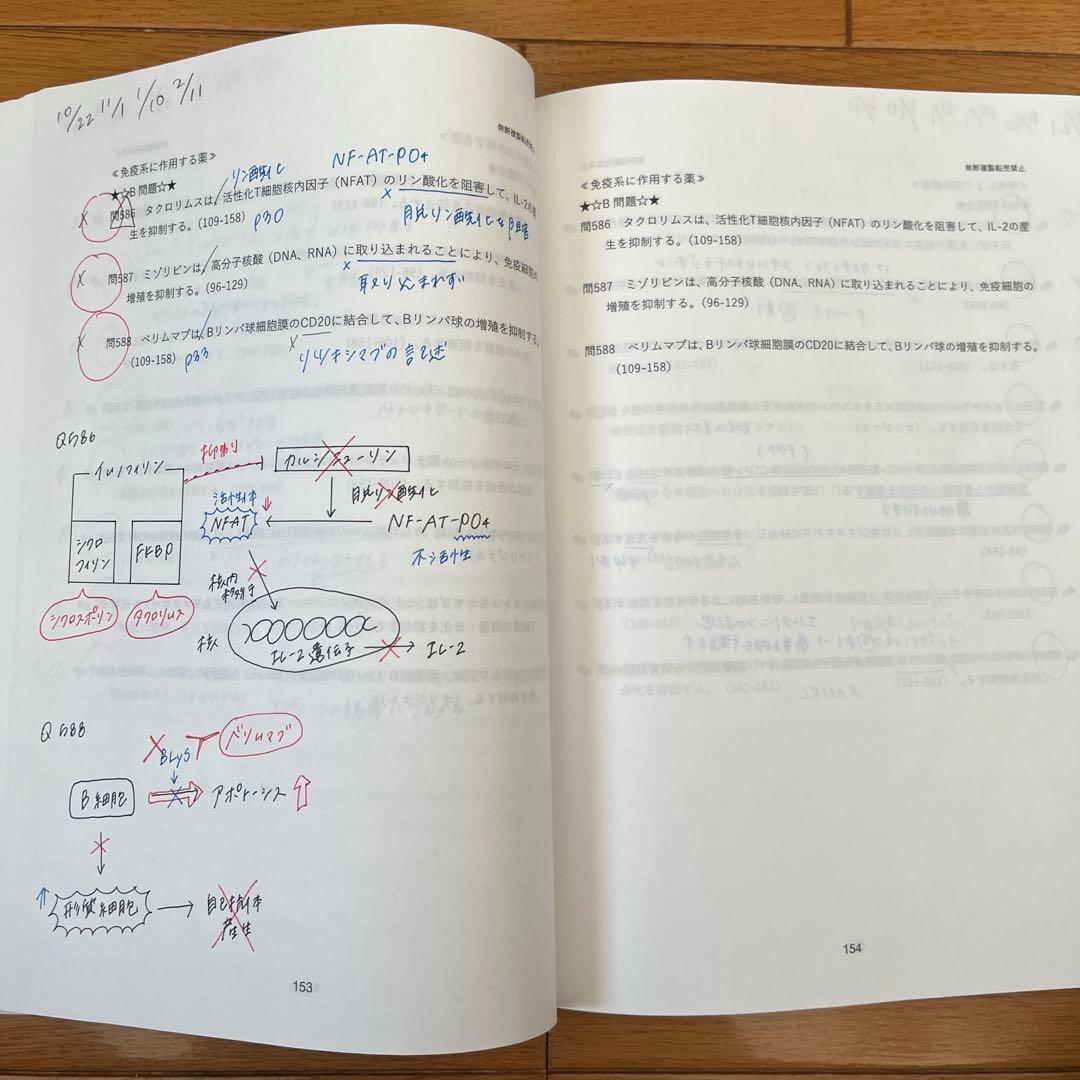 10/22 11/1 1/10 2/11
無断複製転売禁止
≪免疫系に作用する薬≫
リン酸化 NF-AT-PO4
★☆B問題☆★
× 問586 タクロリムスは、活性化T細胞核内因子（NFAT）のリン酸化を阻害して、IL-2の産
生を抑制する。（109-158） p30 × 脱リン酸化を阻害
× 問587 ミゾリビンは、高分子核酸（DNA、RNA）に取り込まれることにより、免疫細胞の
増殖を抑制する。（96-129） × 取り込まれず
× 問588 ベリムマブは、Bリンパ球細胞膜のCD20に結合して、Bリンパ球の増殖を抑制する。
（109-158） p33 × リツキシマブの記述
Q586
抑制
イムノフィリン
カルシニューリン
脱リン酸化
活性体
NFAT
NF-AT-PO4
不活性
シクロ
フィリン
FKBP
核内
移行
シクロスポリン
タクロリムス
核
IL-2遺伝子
IL-2
Q588
ベリムマブ
BLyS
B細胞
アポトーシス
形質細胞
自己抗体
産生
153
無断複製転売禁止
≪免疫系に作用する薬≫
★☆B問題☆★
問586 タクロリムスは、活性化T細胞核内因子（NFAT）のリン酸化を阻害して、IL-2の産
生を抑制する。（109-158）
問587 ミゾリビンは、高分子核酸（DNA、RNA）に取り込まれることにより、免疫細胞の
増殖を抑制する。（96-129）
問588 ベリムマブは、Bリンパ球細胞膜のCD20に結合して、Bリンパ球の増殖を抑制する。
（109-158）
154